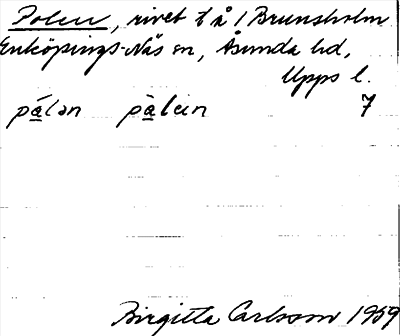 Polen, rivet t å 1 Brunsholm
Enköpings-Näs sn, Åsunda hd,
Upps l.
pá̲lən pà̲lein 7
Birgitta Carlsson 1959